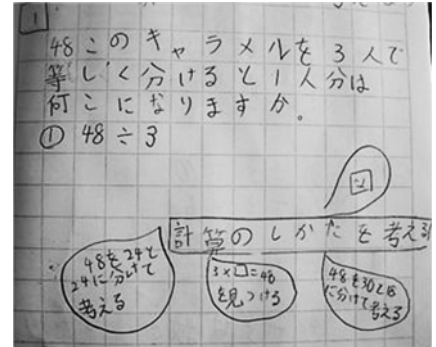 1
48このキャラメルを3人で
等しく分けると1人分は
何こになりますか。
① 48÷3
計算のしかたを考える
48を24と
24に分けて
考える
3×□=48
を見つける
48を30と18
に分けて考える